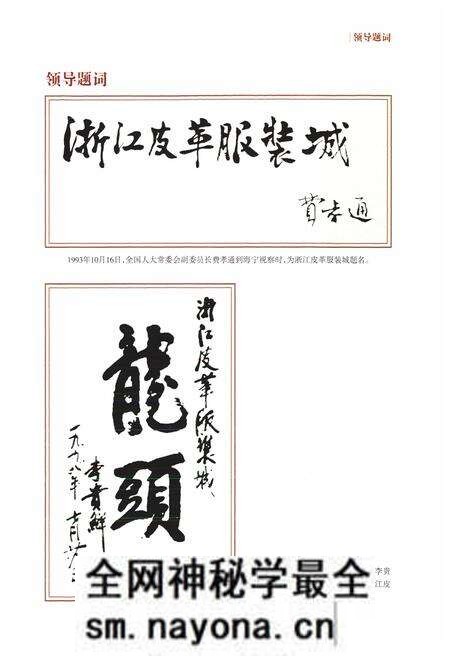 领导题词
领导题词
浙江皮革服装城
费孝通
1993年10月16日，全国人大常委会副委员长费孝通到海宁视察时，为浙江皮革服装城题名。
浙江皮革服装城
龍頭
李贵鲜
一九九八年
李贵
江皮
全网神秘学最全
sm.nayona.cn